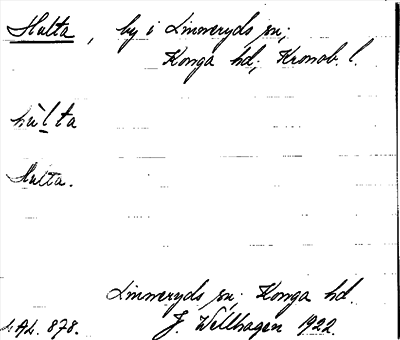 Hulta, by i Linneryds sn;
Konga hd; Kronob. l.
hùlta
Hulta.
Linneryds sn; Konga hd.
LAL. 878. J. Wellhagen 1922.